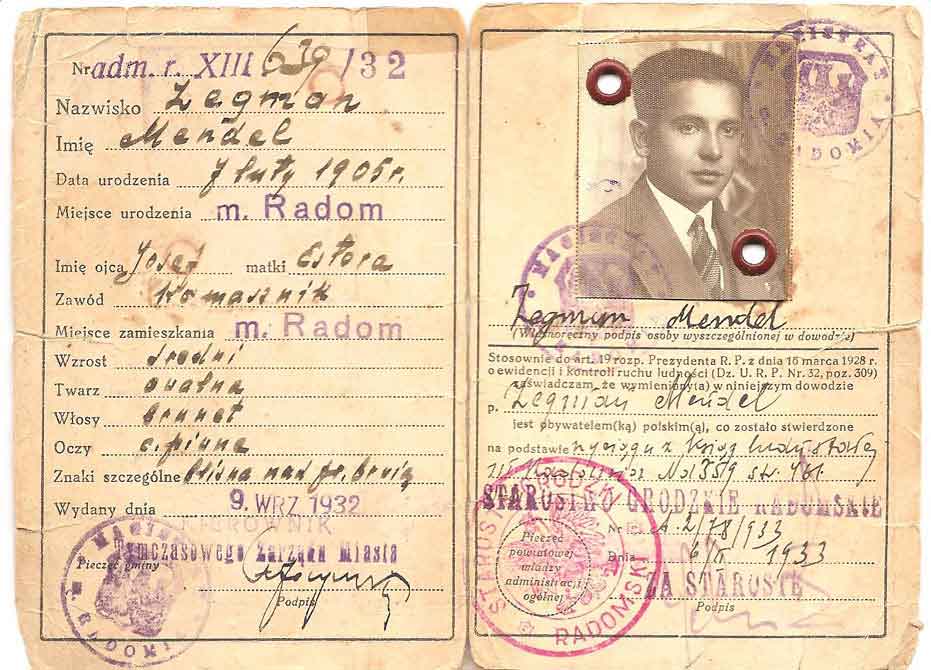 Nr adm. r. XIII 639/32
Nazwisko Zegman
Imię Mendel
Data urodzenia 7 luty 1905 r.
Miejsce urodzenia m. Radom
Imię ojca Josef matki Estera
Zawód kamasznik
Miejsce zamieszkania m. Radom
Wzrost średni
Twarz owalna
Włosy brunet
Oczy c. piwne
Znaki szczególne blizna nad pr. brwią
Wydany dnia 9. WRZ 1932
KIEROWNIK
Tymczasowego Zarządu Miasta
Pieczęć gminy
Podpis
MAGISTRAT
Zegman Mendel
(Własnoręczny podpis osoby wyszczególnionej w dowodzie)
Stosownie do art. 19 rozp. Prezydenta R. P. z dnia 16 marca 1928 r.
o ewidencji i kontroli ruchu ludności (Dz. U. R. P. Nr. 32, poz. 309)
zaświadczam, że wymieniony(a) w niniejszym dowodzie
p. Zegman Mendel
jest obywatelem(ką) polskim(ą), co zostało stwierdzone
na podstawie wyciągu z ksiąg ludn. stałej
STAROSTWO GRODZKIE RADOMSKIE
Nr A. 2/78/933
Pieczęć
powiatowej
władzy
administracji
ogólnej
Dnia 1933
ZA STAROSTĘ
Podpis